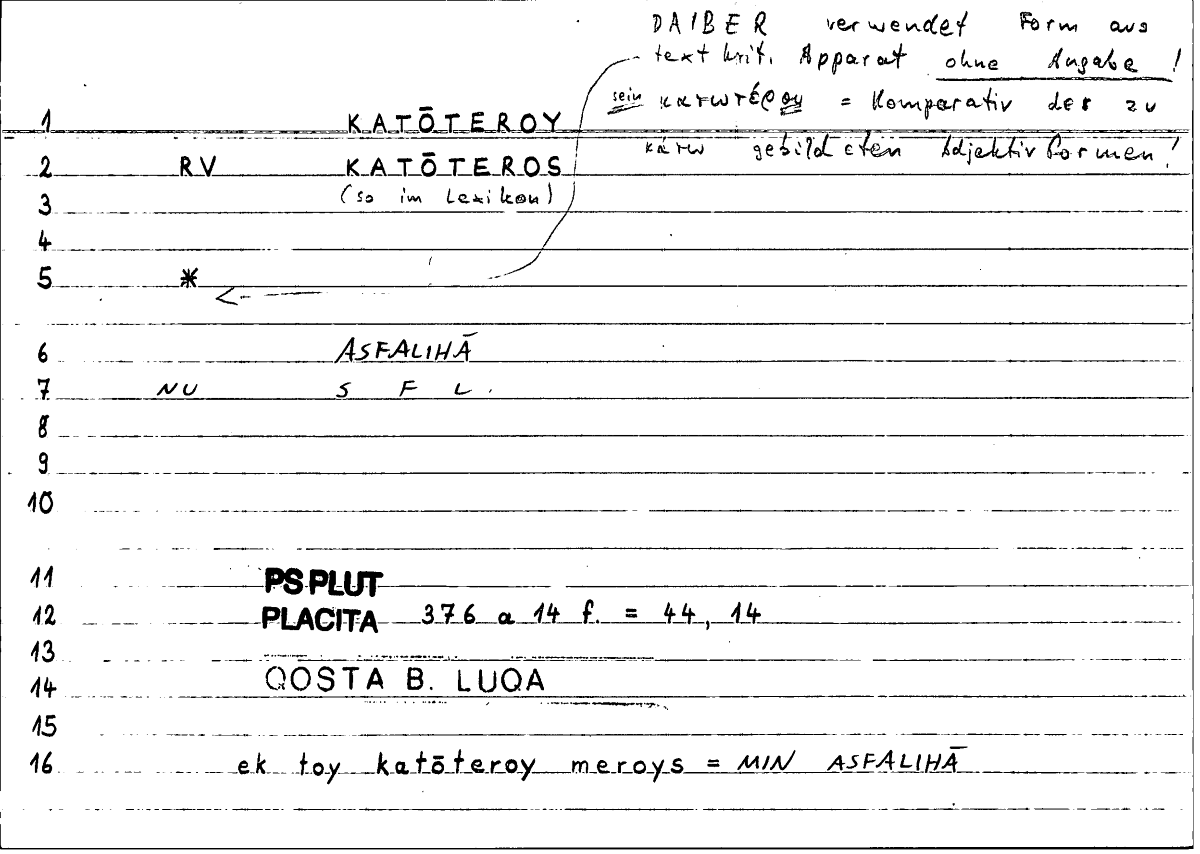 DAIBER verwendet Form aus
textkrit. Apparat ohne Angabe!
sein κατωτέρου = Komparativ der zu
κάτω gebildeten Adjektivformen!
1 KATŌTEROY
2 RV KATŌTEROS
3 (so im Lexikon)
4
5 *
6 ASFALIHĀ
7 NU S F L.
8
9
10
11 PS PLUT
12 PLACITA 376 a 14 f. = 44, 14
13
14 QOSTA B. LUQA
15
16 ek toy katōteroy meroys = MIN ASFALIHĀ